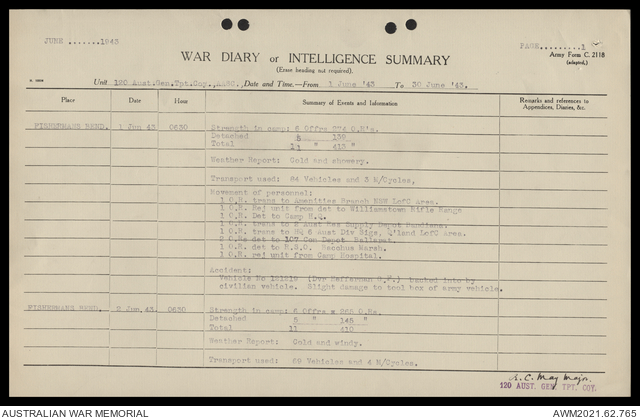 JUNE .......1943
PAGE.........1
WAR DIARY or INTELLIGENCE SUMMARY
Army Form C. 2118
(adapted.)
(Erase heading not required).
Unit 120 Aust.Gen.Tpt.Coy.,AASC., Date and Time.—From 1 June '43 To 30 June '43.
Place Date Hour Summary of Events and Information Remarks and references to
Appendices, Diaries, &c.
FISHERMANS BEND. 1 Jun 43 0630 Strength in camp: 6 Offrs 274 O.R's.
Detached " 139
Total " 413 "
Weather Report: Cold and showery.
Transport used: 84 Vehicles and 3 M/Cycles,
Movement of personnel:
1 O.R. trans to Amenities Branch NSW LofC Area.
1 O.R. Rej unit from det to Williamstown Rifle Range
1 O.R. Det to Camp H.Q.
1 O.R. trans to 2 Aust Supply Depot
1 O.R. trans to HQ 6 Aust Div Sigs, Q'land LofC Area.
2 O.Rs det to 107 Con Depot Ballarat.
1 O.R. det to R.S.O. Bacchus Marsh.
1 O.R. rej unit from Camp Hospital.
Accident:
Vehicle No 151219 (Dvr Heffernan) backed into by
civilian vehicle. Slight damage to tool box of army vehicle.
FISHERMANS BEND. 2 Jun 43. 0630 Strength in camp: 6 Offrs x 265 O.Rs.
Detached 5 " 145 "
Total 11 410 "
Weather Report: Cold and windy.
Transport used: 69 Vehicles and 4 M/Cycles.
A.C. May Major.
120 AUST. GEN. TPT. COY.
AUSTRALIAN WAR MEMORIAL AWM2021.62.765